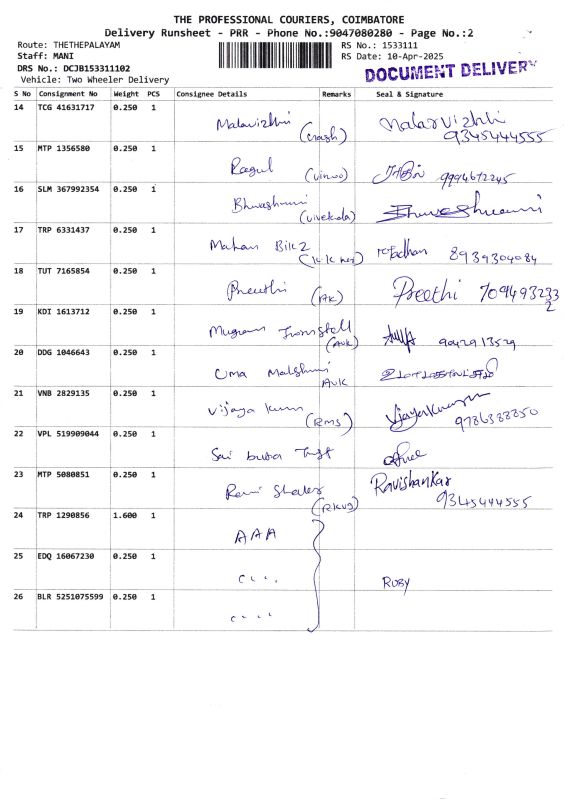 THE PROFESSIONAL COURIERS, COIMBATORE
Delivery Runsheet - PRR - Phone No.:9047080280 - Page No.:2
Route: THETHEPALAYAM
RS No.: 1533111
Staff: MANI
RS Date: 10-Apr-2025
DRS No.: DCJB153311102
DOCUMENT DELIVERY
Vehicle: Two Wheeler Delivery
S No Consignment No Weight PCS Consignee Details Remarks Seal & Signature
14 TCG 41631717 0.250 1 Malavizhi (crash) Malarvizhi
9345444555
15 MTP 1356580 0.250 1 Ragul 9994672245
16 SLM 367992354 0.250 1 Bhuvashwni (vivekola)
17 TRP 6331437 0.250 1 Mahan 8939304084
18 TUT 7165854 0.250 1 Preethi (AK) Preethi 7094932332
19 KDI 1613712 0.250 1 Mugram (AUK) 9042913529
20 DDG 1046643 0.250 1 Uma AUK
21 VNB 2829135 0.250 1 Vijaya kum (RMS) Vijayakumar
9786388850
22 VPL 519909044 0.250 1 Sai baba Trust
23 MTP 5080851 0.250 1 Ravi (RKVS) Ravishankar
9345444555
24 TRP 1290856 1.600 1 AAA
25 EDQ 16067230 0.250 1 " " RUBY
26 BLR 5251075599 0.250 1 " "